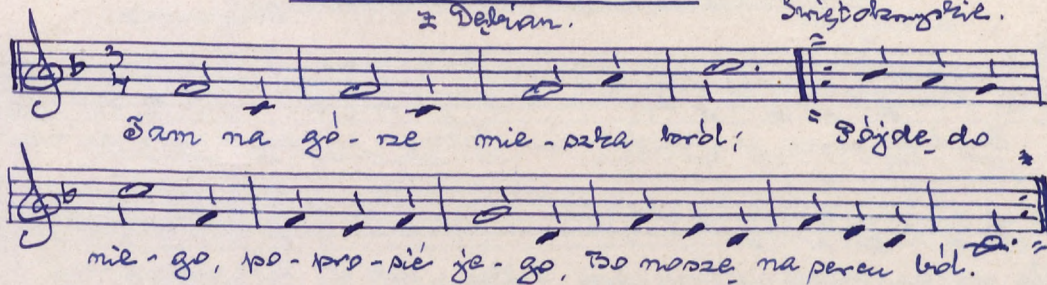 z Dębian. Świętokrzyskie.
3
4
Tam na gó-rze mie-szka król; Pójdę do
nie-go, po-pro-sić je-go, Bo noszę na sercu ból.